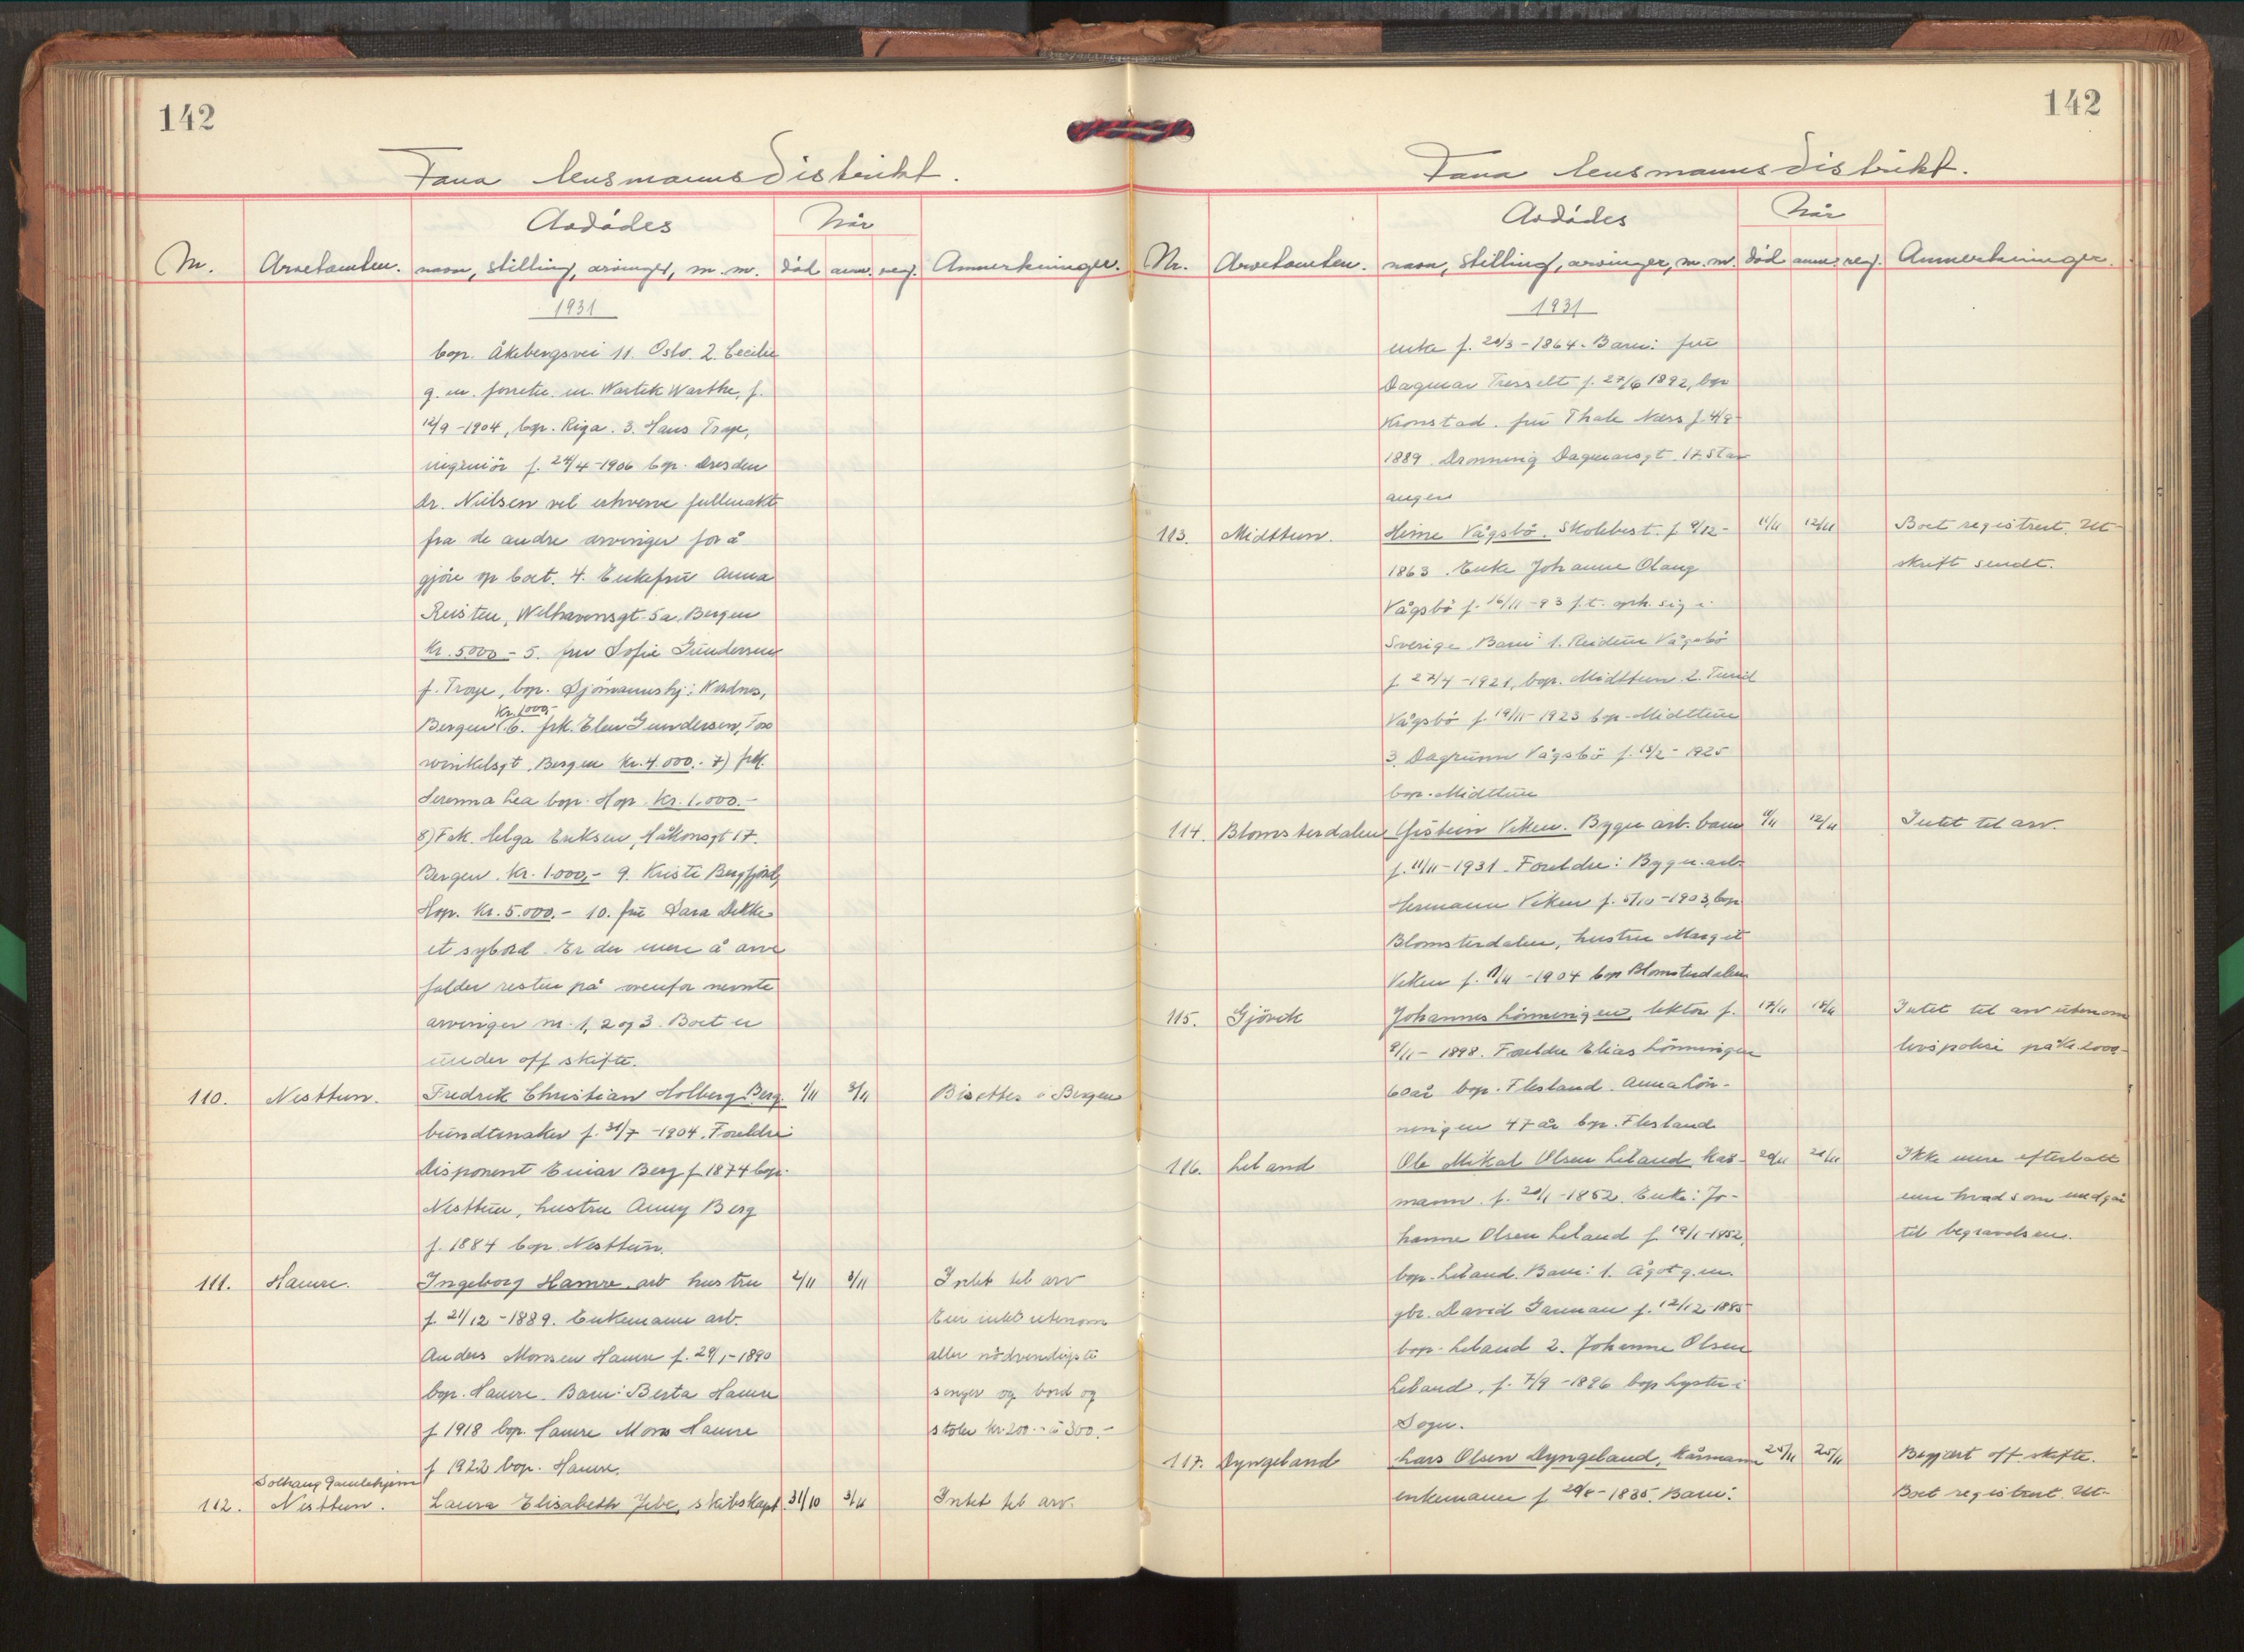 142
Fana lensmannsdistrikt.
Avdødes
Når
Nr. Arvetomten. navn, stilling, arvinger, m.m. død anm. reg. Anmerkninger.
1931
bop. Åkebergsvei 11. Oslo. 2. Cecilie
g. m. forretn. m. Wartek Warthe, f.
12/9 -1904, bop. Riga. 3. Hans Troye,
ingeniör f. 24/4 -1906 bop. Dresden
Dr. Nielsen vil erhverve fullmakt
fra de andre arvinger for å
gjöre op boet. 4. Enkefru Anna
Reisten, Welhavensgt. 5a, Bergen
kr. 5000 - 5. fru Sofie Gundersen
f. Troye, bop. Sjömannshj. Nordnes,
kr. 1000,-
Bergen 6. frk. Elen Gundersen, Tor
winkelsgt, Bergen kr. 4.000.- 7) frk.
Serenna Lea bop. Hop kr. 1.000.-
8) Frk. Helga Eriksen, Håkonsgt 17.
Bergen. kr. 1.000,- 9. Kristi Bergfjord,
Hop. kr. 5.000.- 10. frü Sara Dekke
et sybord. Er der mere å arve
falder resten på ovenfor nevnte
arvinger nr. 1, 2 og 3. Boet er
under off skifte.
110. Nesttun. Fredrik Christian Holberg Berg. 1/11 3/11 Bisettes i Bergen
bundtmaker f. 31/7 -1904. Foreldre
Disponent Einar Berg f 1874 bop.
Nesttun, hustru Anny Berg
f. 1884 bop. Nesttun.
111. Hamre. Ingeborg Hamre. arb hustru 2/11 3/11 Intet til arv
f. 21/12 -1889. Enkemann arb. Eier intet utenom
Anders Monsen Hamre f. 29/1 -1890 aller nödvendigste
bop. Hamre. Barn: Berta Hamre senger og bord og
f 1918 bop. Hamre Mons Hamre stoler kr 200.- à 300.-
f 1922 bop. Hamre.
Solhaug Gamlehjem
112. Nesttun. Laura Elisabeth Jebe, skibskapt. 31/10 3/11 Intet til arv.
142
Fana lensmannsdistrikt.
Avdødes
Når
Nr. Arvetomten. navn, stilling, arvinger, m.m. død anm. reg. Anmerkninger.
1931
enke f. 20/3 -1864. Barn: frü
Dagmar Tresselt f. 27/6 1892, bop
Kronstad. frü Thale Næss f. 4/9
1889 Dronning Dagmarsgt. 17. Stav
anger
113. Midttun. Heine Vågsbö. Skolebest. f 9/12 - 11/11 12/11 Boet registrert. Ut-
1863. Enke Johanne Olaug skrift sendt.
Vågsbö f. 16/11 -93 f.t. oph. sig i
Sverige. Barn 1. Reidun Vågsbö
f. 27/4 -1921, bop. Midttun 2. Turid
Vågsbö f 19/11 1923 bop. Midttun
3. Dagrunn Vågsbö f. 13/2 - 1925
bop. Midttun
114. Blomsterdalen Öistein Viken. Bygn arb. barn 11/11 12/11 Intet til arv.
f. 11/11 -1931. Foreldre: Bygn. arb.
Hermann Viken f. 5/10 -1903, bop
Blomsterdalen, hustru Margit
Viken f. 11/4 -1904 bop Blomsterdalen
115. Gjövik Johannes Lönningen, lektor f. 17/11 18/11 Intet til arv utenom
9/11 - 1898. Foreldre Elias Lönningen livspolise på kr.
60 år bop. Flesland. Anna Lön-
ningen 47 år bop. Flesland
116. Leland Ole Mikal Olsen Leland kår- 20/11 21/11 Ikke mere efterlatt
mann. f. 20/1 -1852. Enke: Jo- enn hvad som medgår
hanne Olsen Leland f 19/1 -1852, til begravelsen.
bop. Leland. Barn: 1. Ågot g.m.
gbr. David Garman f. 12/12 1885
bop. Leland 2. Johanne Olsen
Leland, f. 7/9 -1896 bop Lyster i
Sogn.
117. Dyngeland Lars Olsen Dyngeland, kårmann 25/11 25/11 Begjært off skifte.
enkemann f 29/5 -1835. Barn: Boet registrert. Ut-